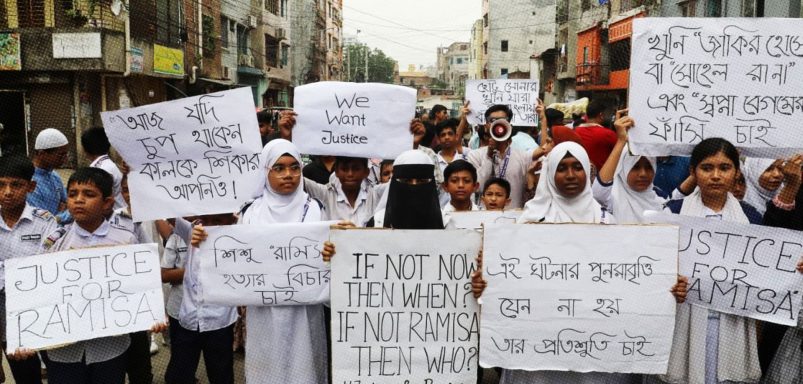 "আজ যদি
চুপ থাকেন
কালকে শিকার
আপনিও!
We
Want
Justice
খুনি "জাকির হোসেন
বা "সোহেল রানা"
এবং "স্বপ্না বেগমের"
ফাঁসি চাই
JUSTICE
FOR
RAMISA
শিশু "রামিসা"
হত্যার বিচার
চাই
IF NOT NOW
THEN WHEN?
IF NOT RAMISA
THEN WHO?
এই ঘটনার পুনরাবৃত্তি
যেন না হয়
তার প্রতিশ্রুতি চাই
JUSTICE
FOR
RAMISA